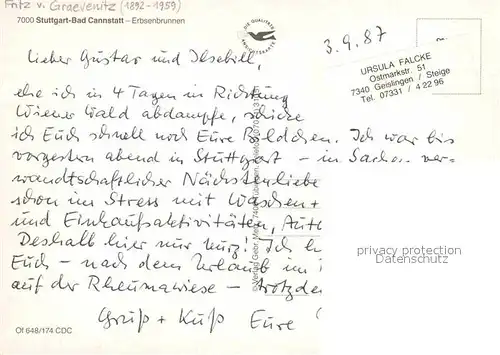 Fritz v. Graevenitz (1892-1959)
7000 Stuttgart-Bad Cannstatt – Erbsenbrunnen
DIE QUALITÄTS
ANSICHTSKARTE
3.9.87
URSULA FALCKE
Ostmarkstr. 51
7340 Geislingen / Steige
Tel. 07331 / 4 22 96
Lieber Gustav und Ilsebill,
ehe ich in 4 Tagen in Richtung
Wiener Wald abdampfe, schicke
ich Euch schnell noch Eure Bildchen. Ich war bis
vorgestern abend in Stuttgart – in Sachen ver-
wandtschaftlicher Nächstenliebe
schon im Stress mit Waschen +
und Einkaufsaktivitäten,
Deshalb hier nur kurz! Ich
Euch – nach dem Urlaub im
auf der Rheumawiese – trotzdem
Gruß + Kuß Eure
© Verlag Gebr. Metz, 7400 Tübingen
privacy protection
Datenschutz
Of 648/174 CDC